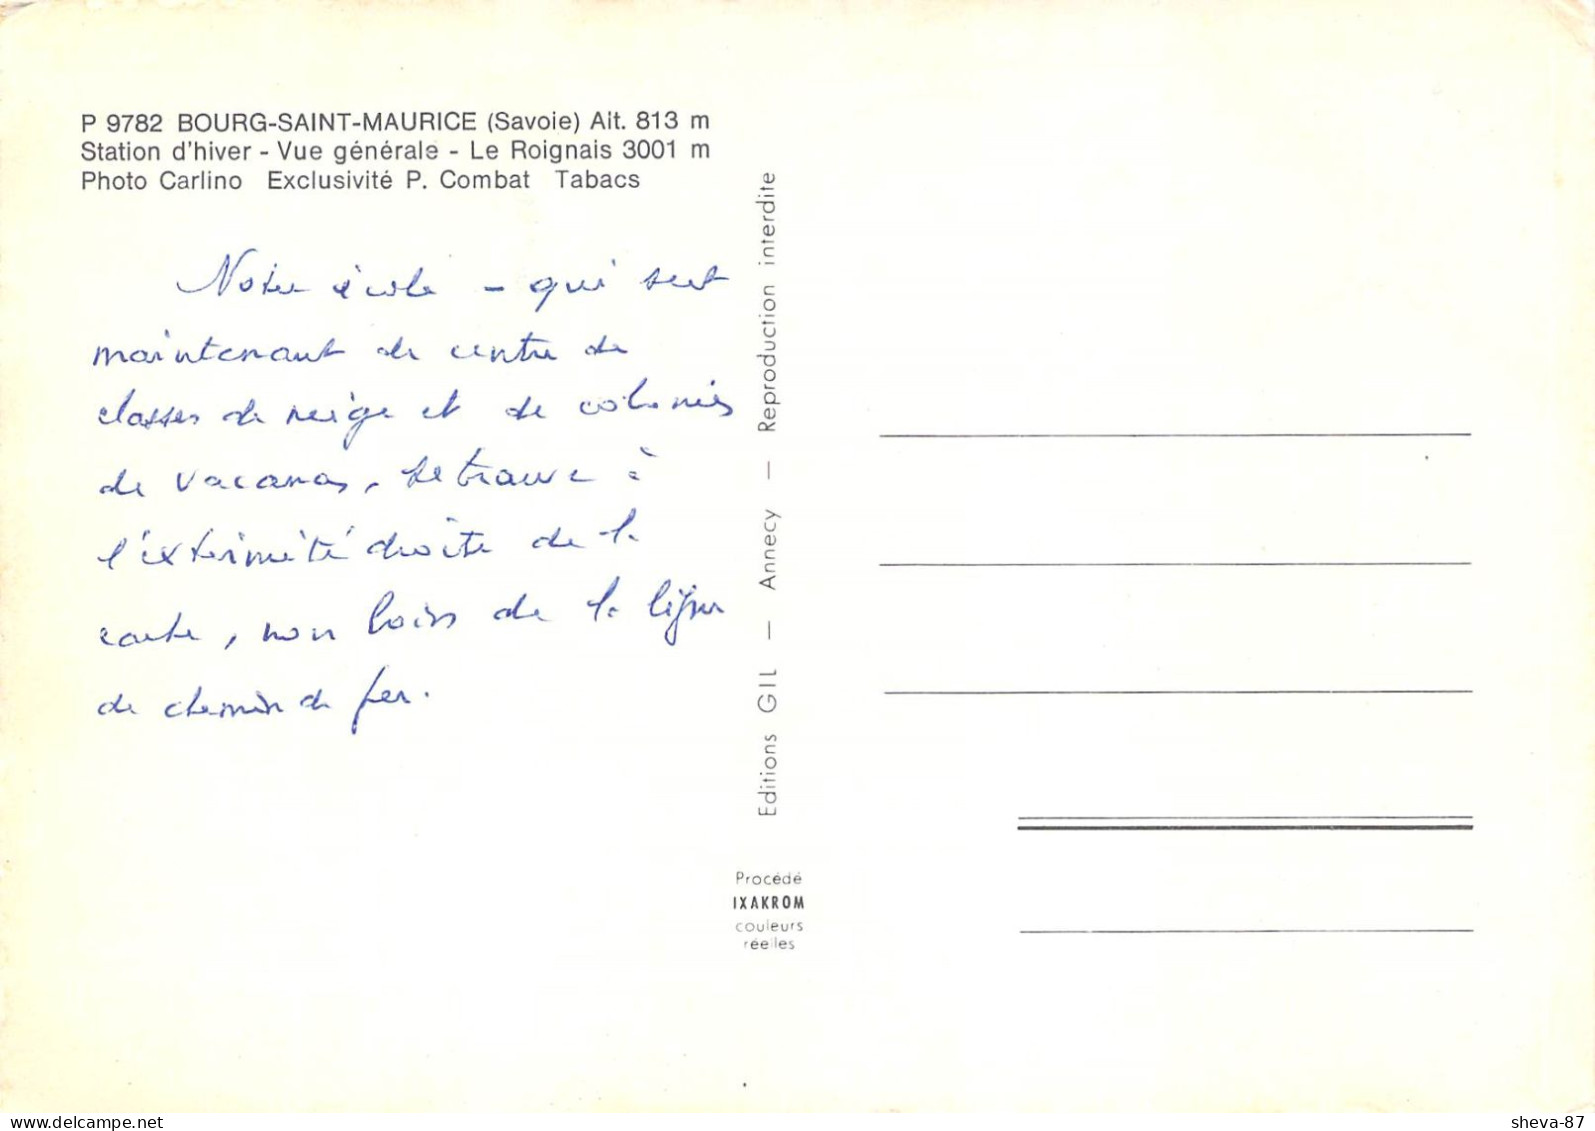 P 9782 BOURG-SAINT-MAURICE (Savoie) Alt. 813 m
Station d'hiver - Vue générale - Le Roignais 3001 m
Photo Carlino Exclusivité P. Combat Tabacs
Notre école - qui sert
maintenant de centre de
classes de neige et de colonies
de vacances, se trouve à
l'extrémité droite de la
carte, non loin de la ligne
de chemin de fer.
Editions GIL — Annecy — Reproduction interdite
Procédé
IXAKROM
couleurs
réelles
sheva-87